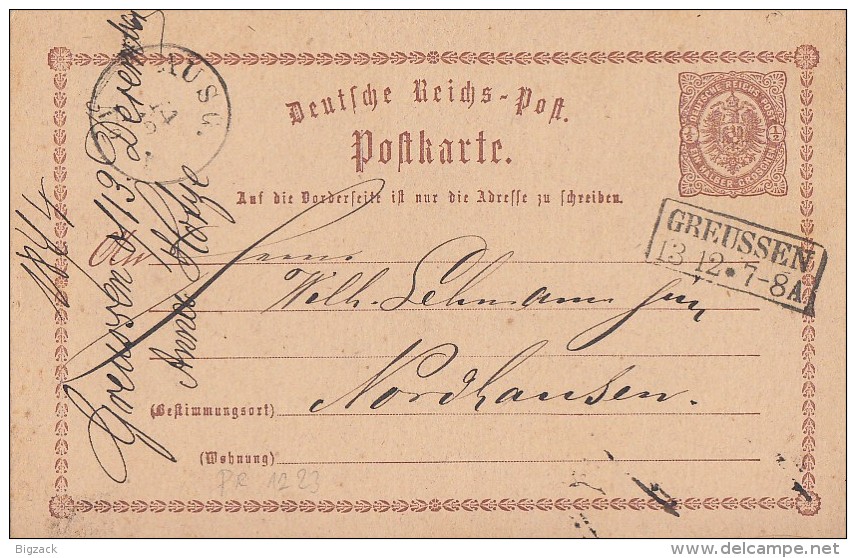 AUSG.
Deutsche Reichs-Post.
Postkarte.
Auf die Vorderseite ist nur die Adresse zu schreiben.
DEUTSCHE REICHS-POST
½ ½
EIN HALBER GROSCHEN
GREUSSEN
13 12 • 7-8A
1874
Greussen d/13. Dezember
Anna
An Herrn
Wilh. Lehmann jun
Nordhausen.
(Bestimmungsort)
(Wohnung)
PR 1223
Bigzack
delcampe.net